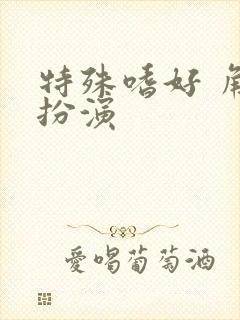 特殊嗜好
扮演
愛喝葡萄酒